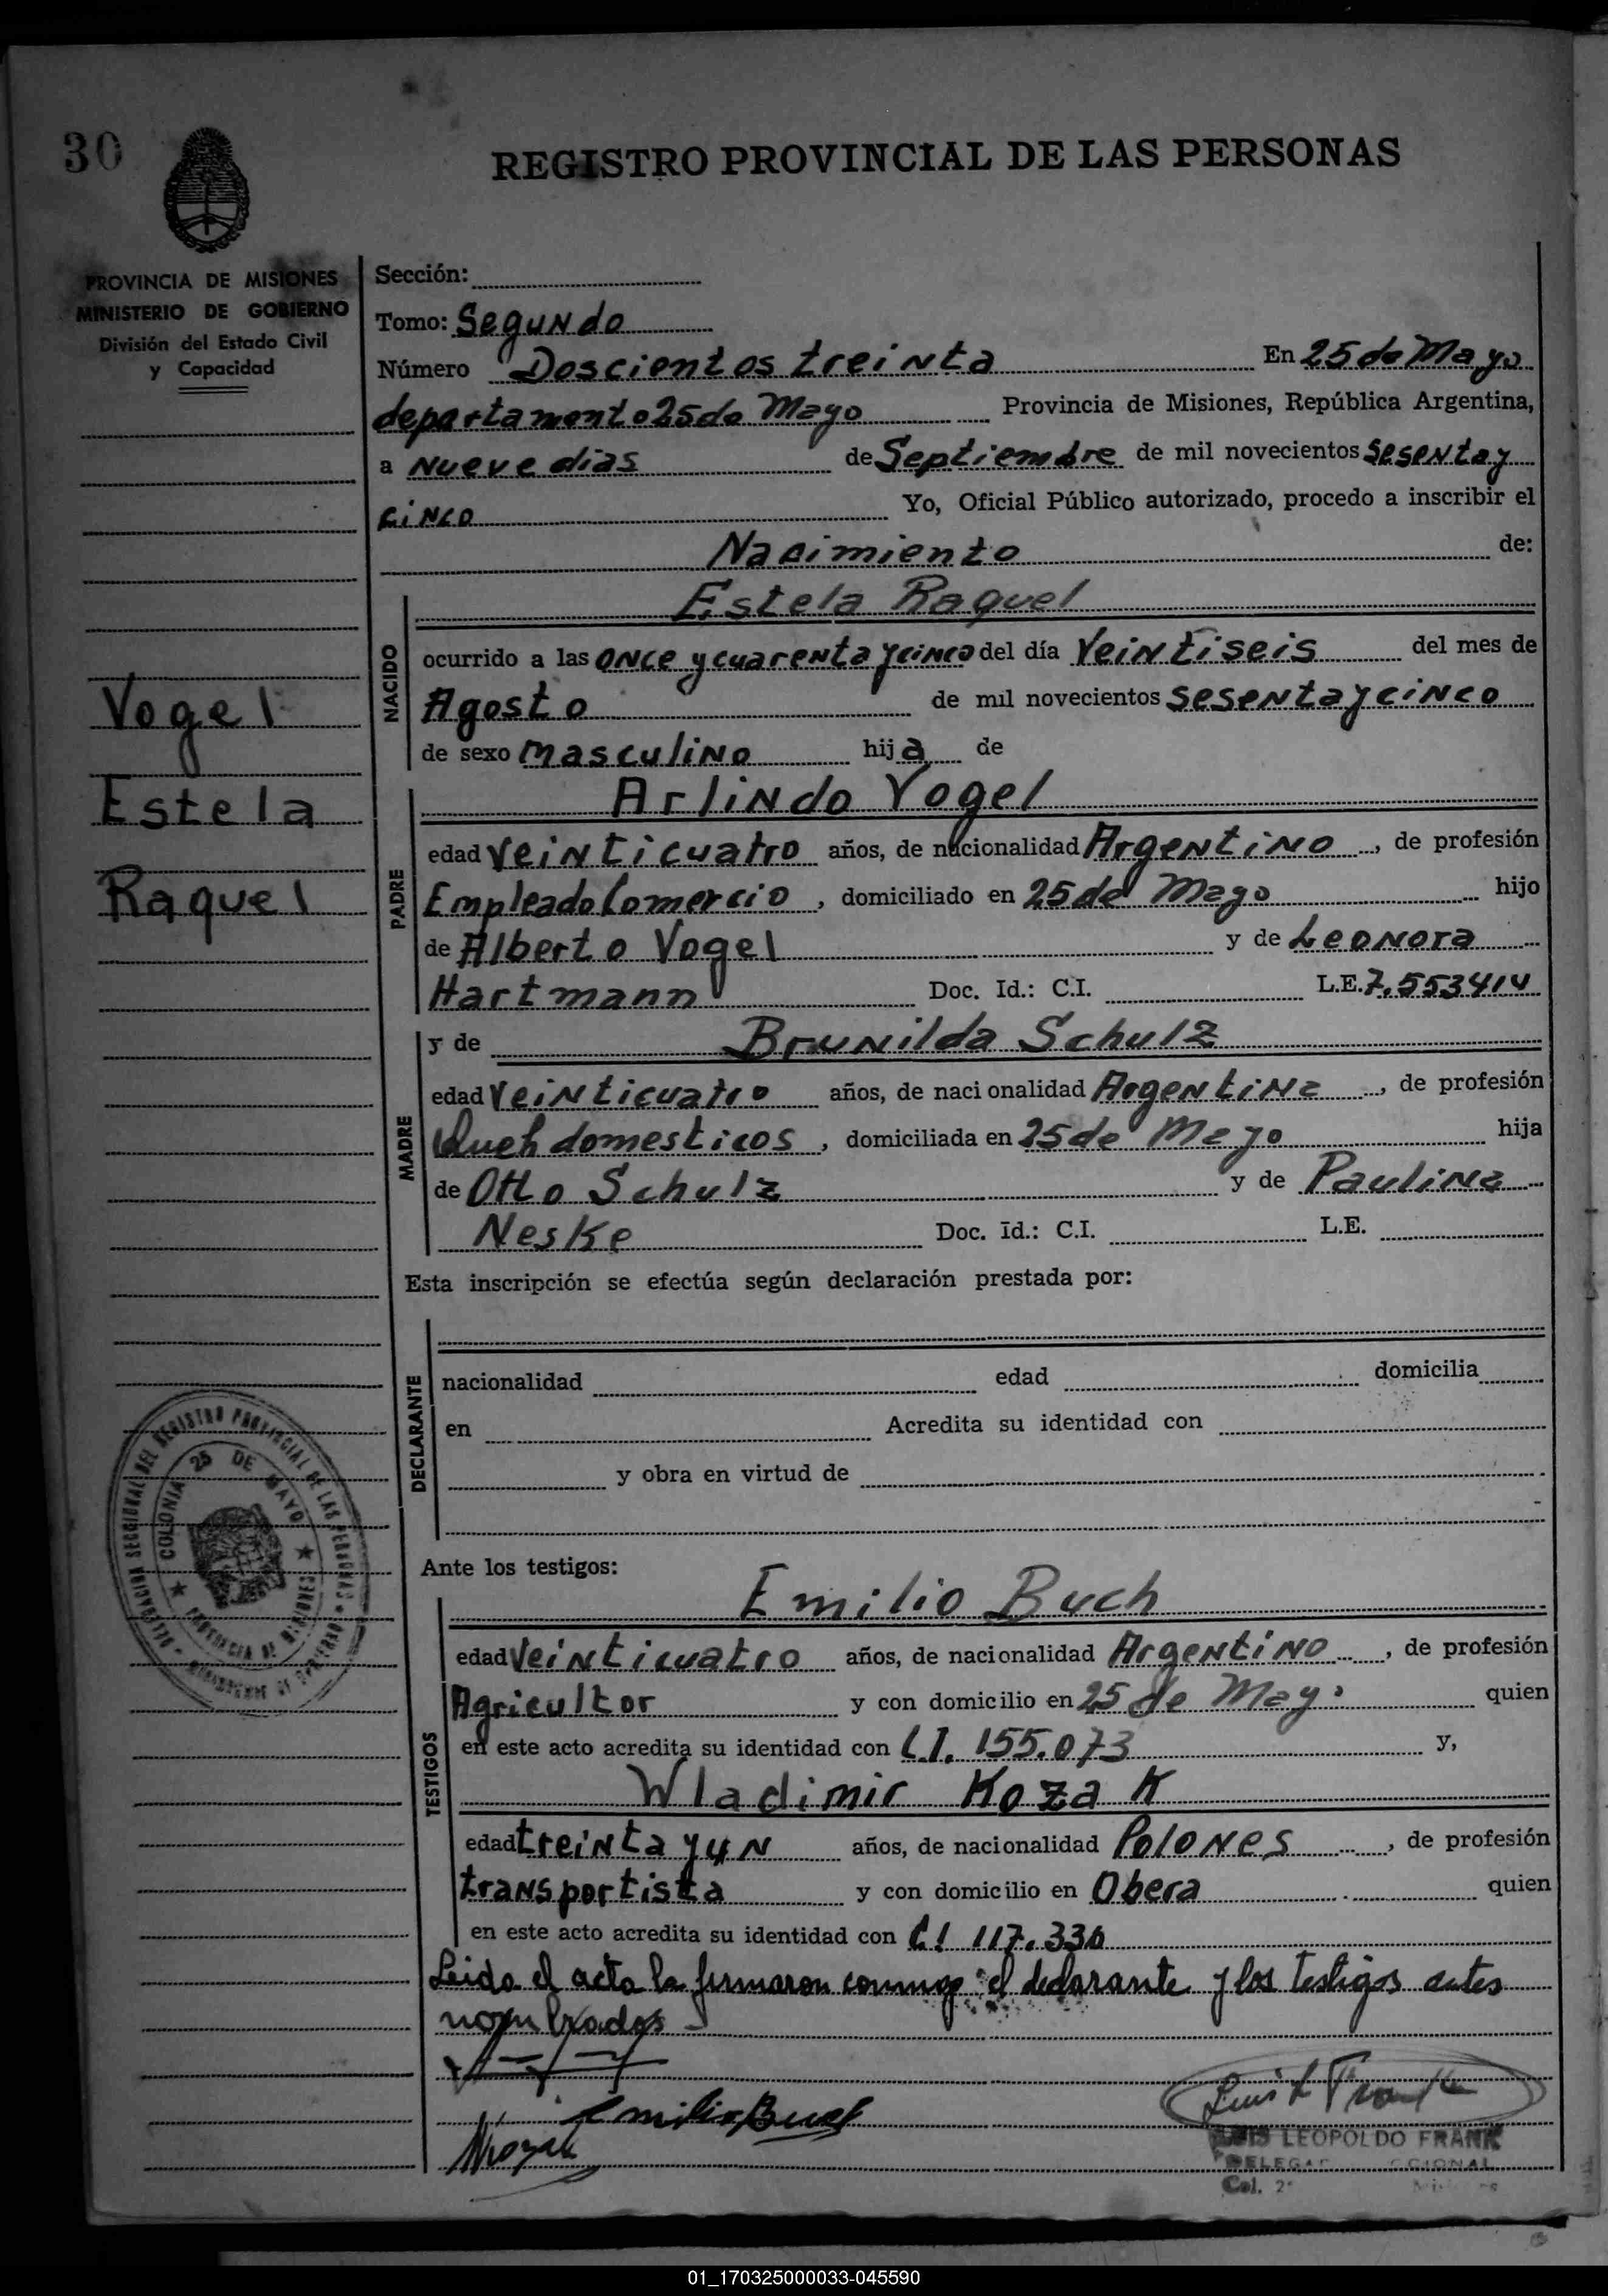 30
REGISTRO PROVINCIAL DE LAS PERSONAS
PROVINCIA DE MISIONES
MINISTERIO DE GOBIERNO
División del Estado Civil
y Capacidad
Vogel
Estela
Raquel
Sección:
Tomo: Segundo
Número Doscientos treinta En 25 de Mayo
departamento 25 de Mayo Provincia de Misiones, República Argentina,
a Nueve dias de Septiembre de mil novecientos sesenta y
cinco Yo, Oficial Público autorizado, procedo a inscribir el
Nacimiento de:
NACIDO
Estela Raquel
ocurrido a las once y cuarenta y cinco del día Veintiseis del mes de
Agosto de mil novecientos sesenta y cinco
de sexo masculino hija de
PADRE
Arlindo Vogel
edad Veinticuatro años, de nacionalidad Argentino, de profesión
Empleado Comercio, domiciliado en 25 de Mayo hijo
de Alberto Vogel y de Leonora
Hartmann Doc. Id.: C.I. L.E. 7.553414
MADRE
y de Brunilda Schulz
edad Veinticuatro años, de naci onalidad Argentina, de profesión
domesticos, domiciliada en 25 de Mayo hija
de Otto Schulz y de Paulina
Neske Doc. Id.: C.I. L.E.
Esta inscripción se efectúa según declaración prestada por:
DECLARANTE
nacionalidad edad domicilia
en Acredita su identidad con
y obra en virtud de
Ante los testigos:
TESTIGOS
Emilio Buch
edad Veinticuatro años, de nacionalidad Argentino, de profesión
Agricultor y con domicilio en 25 de Mayo quien
en este acto acredita su identidad con C.I. 155.073 y,
Wladimir Kozak
edad treinta y un años, de nacionalidad Polones, de profesión
transportista y con domicilio en Obera quien
en este acto acredita su identidad con CI 117.336
Leida el acta la firmaron conmigo el declarante y los testigos antes
nombrados
Emilio Buch
Kozak
Luis L Frank
LUIS LEOPOLDO FRANK
Col. 2
DELEGACION SECCIONAL DEL REGISTRO PROVINCIAL DE LAS PERSONAS
COLONIA 25 DE MAYO
PROVINCIA DE MISIONES
01_170325000033-045590